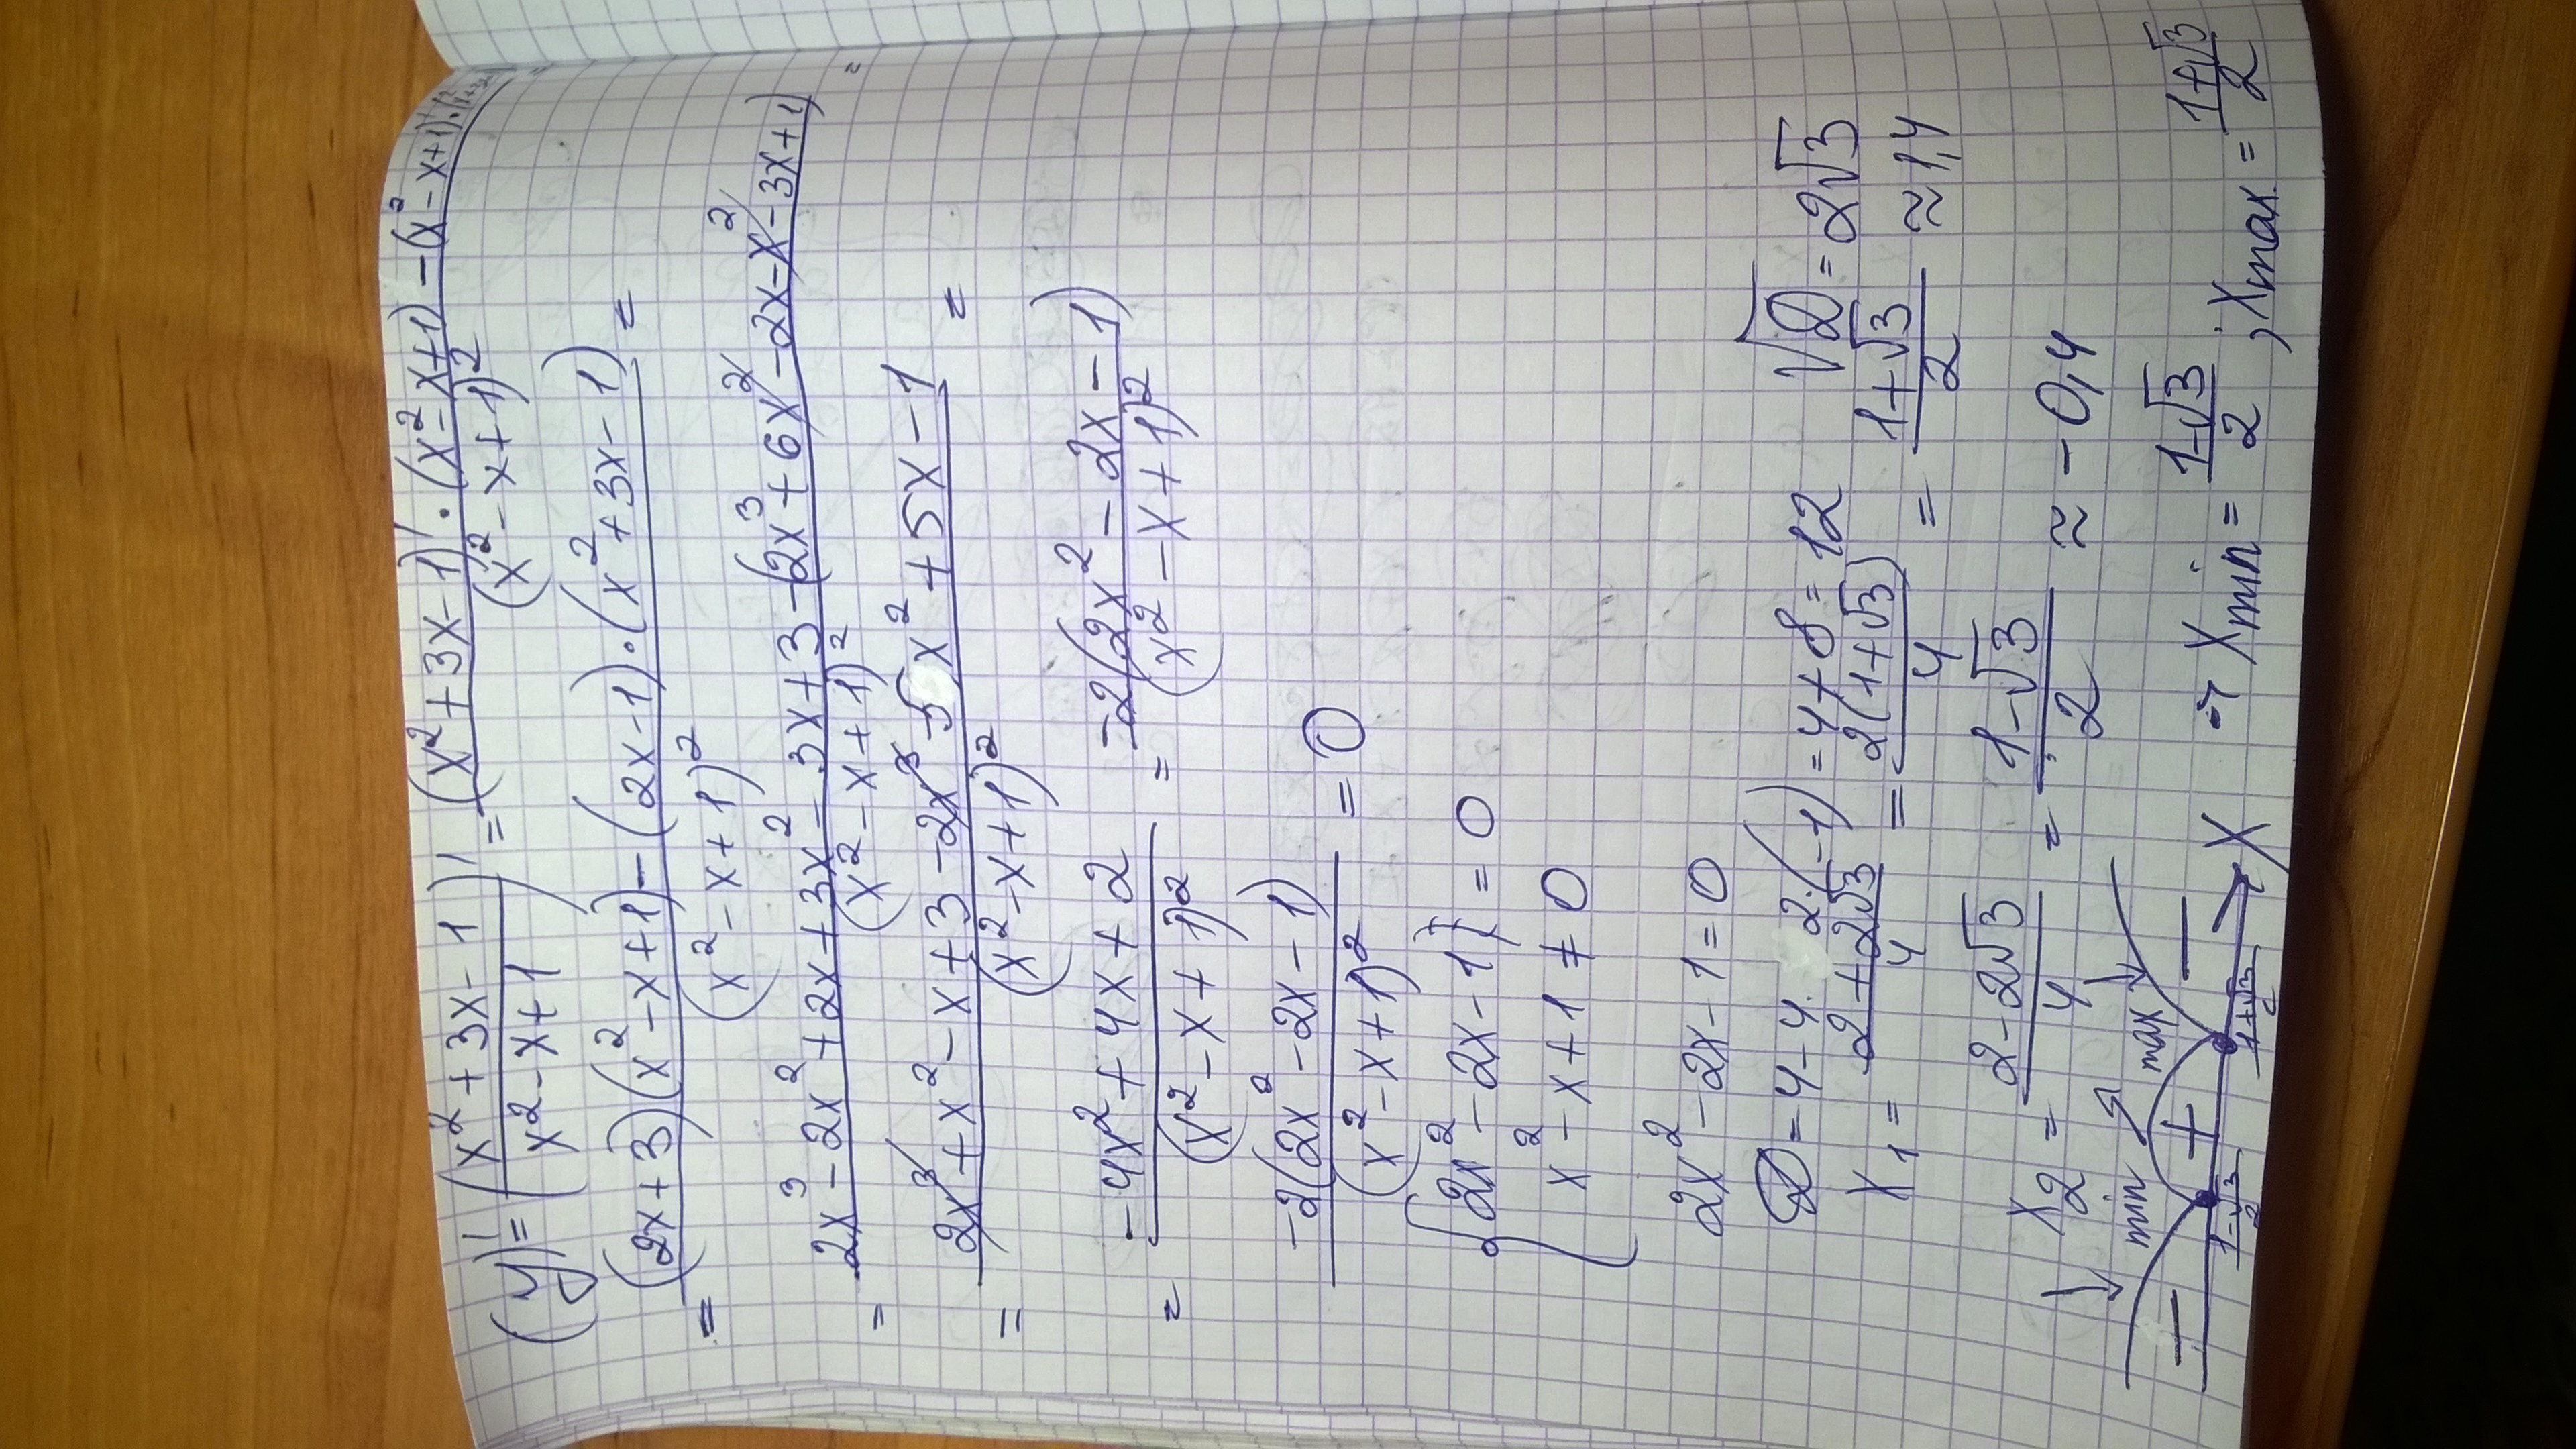 (y)' = ((x² + 3x - 1)/(x² - x + 1))' = ((x² + 3x - 1)' · (x² - x + 1) - (x² - x + 1)' ·)/(x² - x + 1)²
= ((2x + 3)(x² - x + 1) - (2x - 1) · (x² + 3x - 1))/(x² - x + 1)² =
= (2x³ - 2x² + 2x + 3x² - 3x + 3 - (2x³ + 6x² - 2x - x² - 3x + 1))/(x² - x + 1)² =
= (2x³ + x² - x + 3 - 2x³ - 5x² + 5x - 1)/(x² - x + 1)² =
= (-4x² + 4x + 2)/(x² - x + 1)² = (-2(2x² - 2x - 1))/(x² - x + 1)²
(-2(2x² - 2x - 1))/(x² - x + 1)² = 0
{ 2x² - 2x - 1 = 0
x² - x + 1 ≠ 0
2x² - 2x - 1 = 0
D = 4 - 4 · 2 · (-1) = 4 + 8 = 12 √D = 2√3
x₁ = (2 + 2√3)/4 = (2(1 + √3))/4 = (1 + √3)/2 ≈ 1,4
x₂ = (2 - 2√3)/4 = (1 - √3)/2 ≈ -0,4
↘ min ↗ max ↘
- + - → X
(1-√3)/2 (1+√3)/2
Xmin = (1-√3)/2 ; Xmax = (1+√3)/2